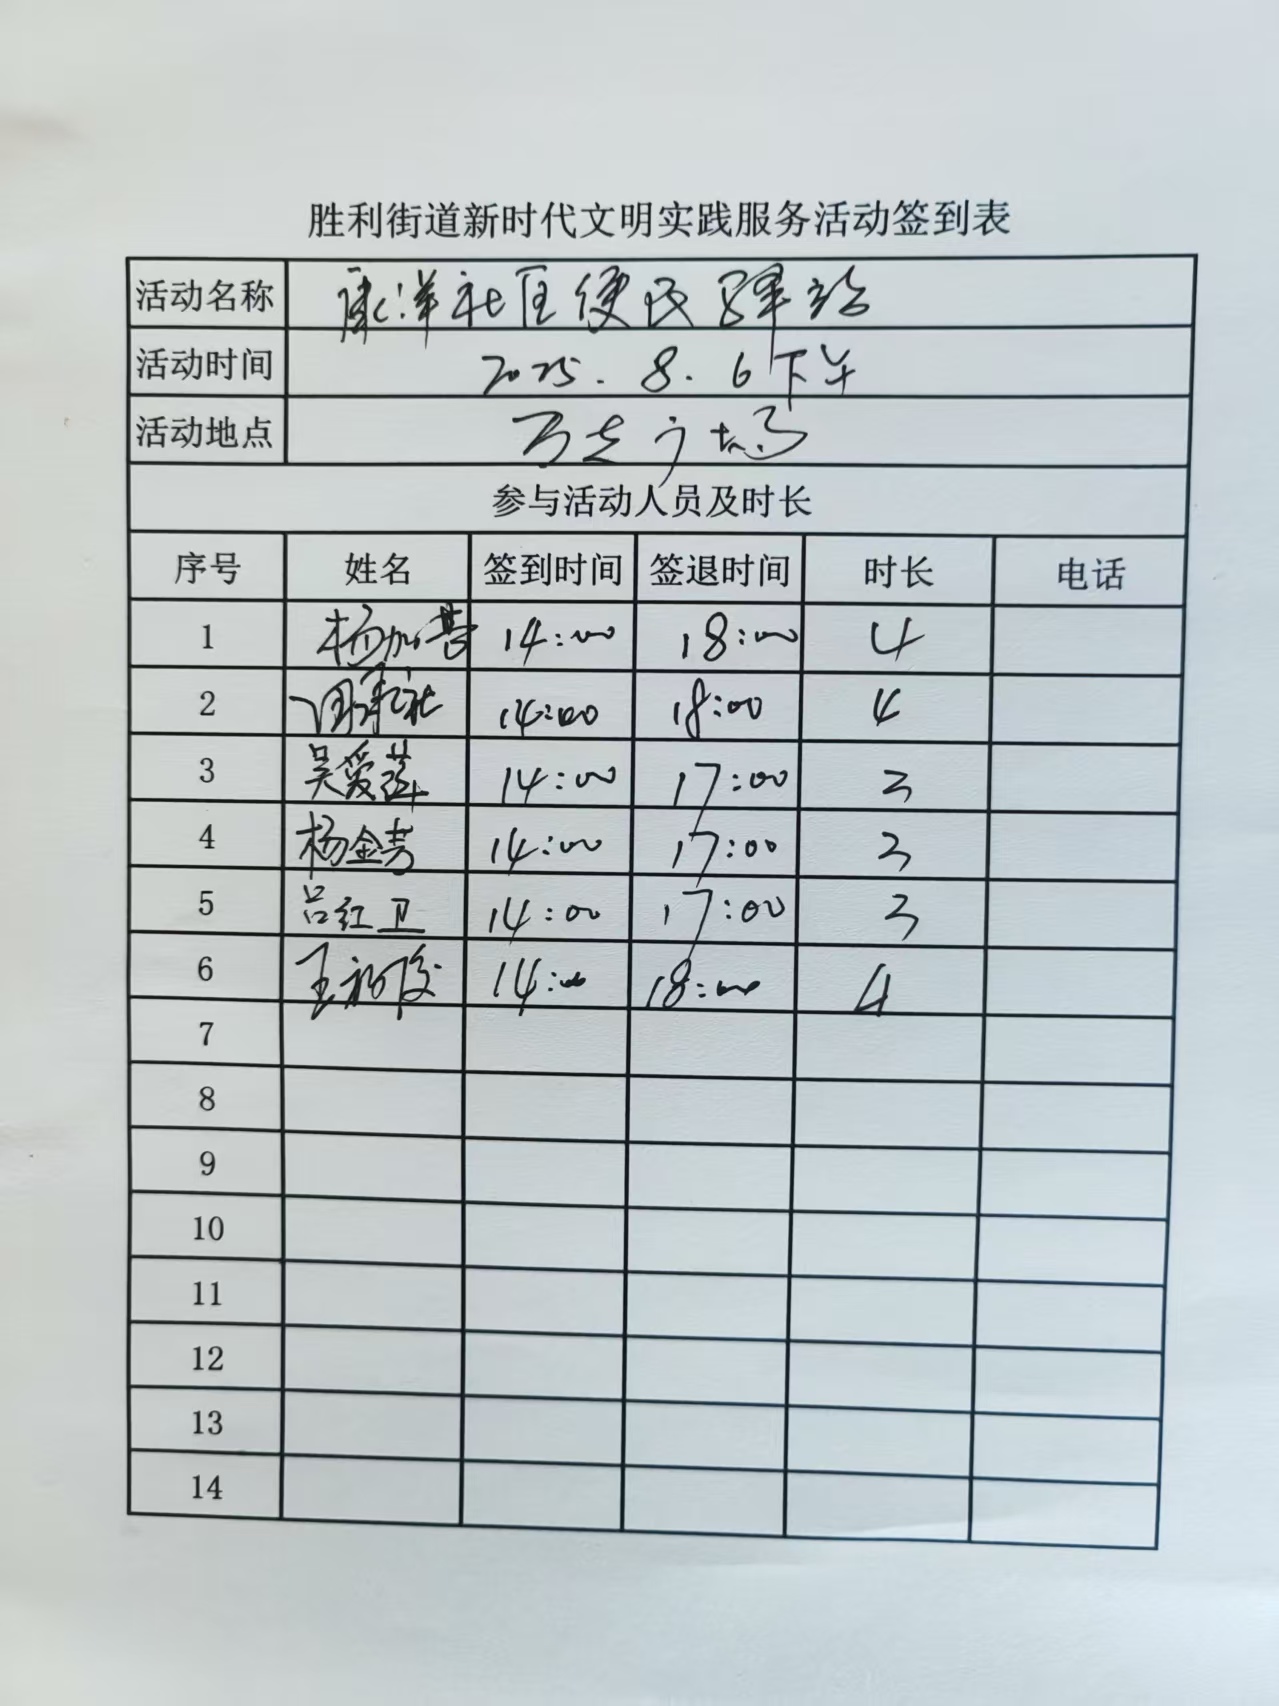 胜利街道新时代文明实践服务活动签到表
活动名称 康洋社区便民驿站
活动时间 2025.8.6下午
活动地点 万达广场
参与活动人员及时长
序号 姓名 签到时间 签退时间 时长 电话
1 杨加 14:00 18:00 4
2 14:00 18:00 4
3 吴爱莲 14:00 17:00 3
4 杨金芳 14:00 17:00 3
5 吕红卫 14:00 17:00 3
6 王 14:00 18:00 4
7
8
9
10
11
12
13
14